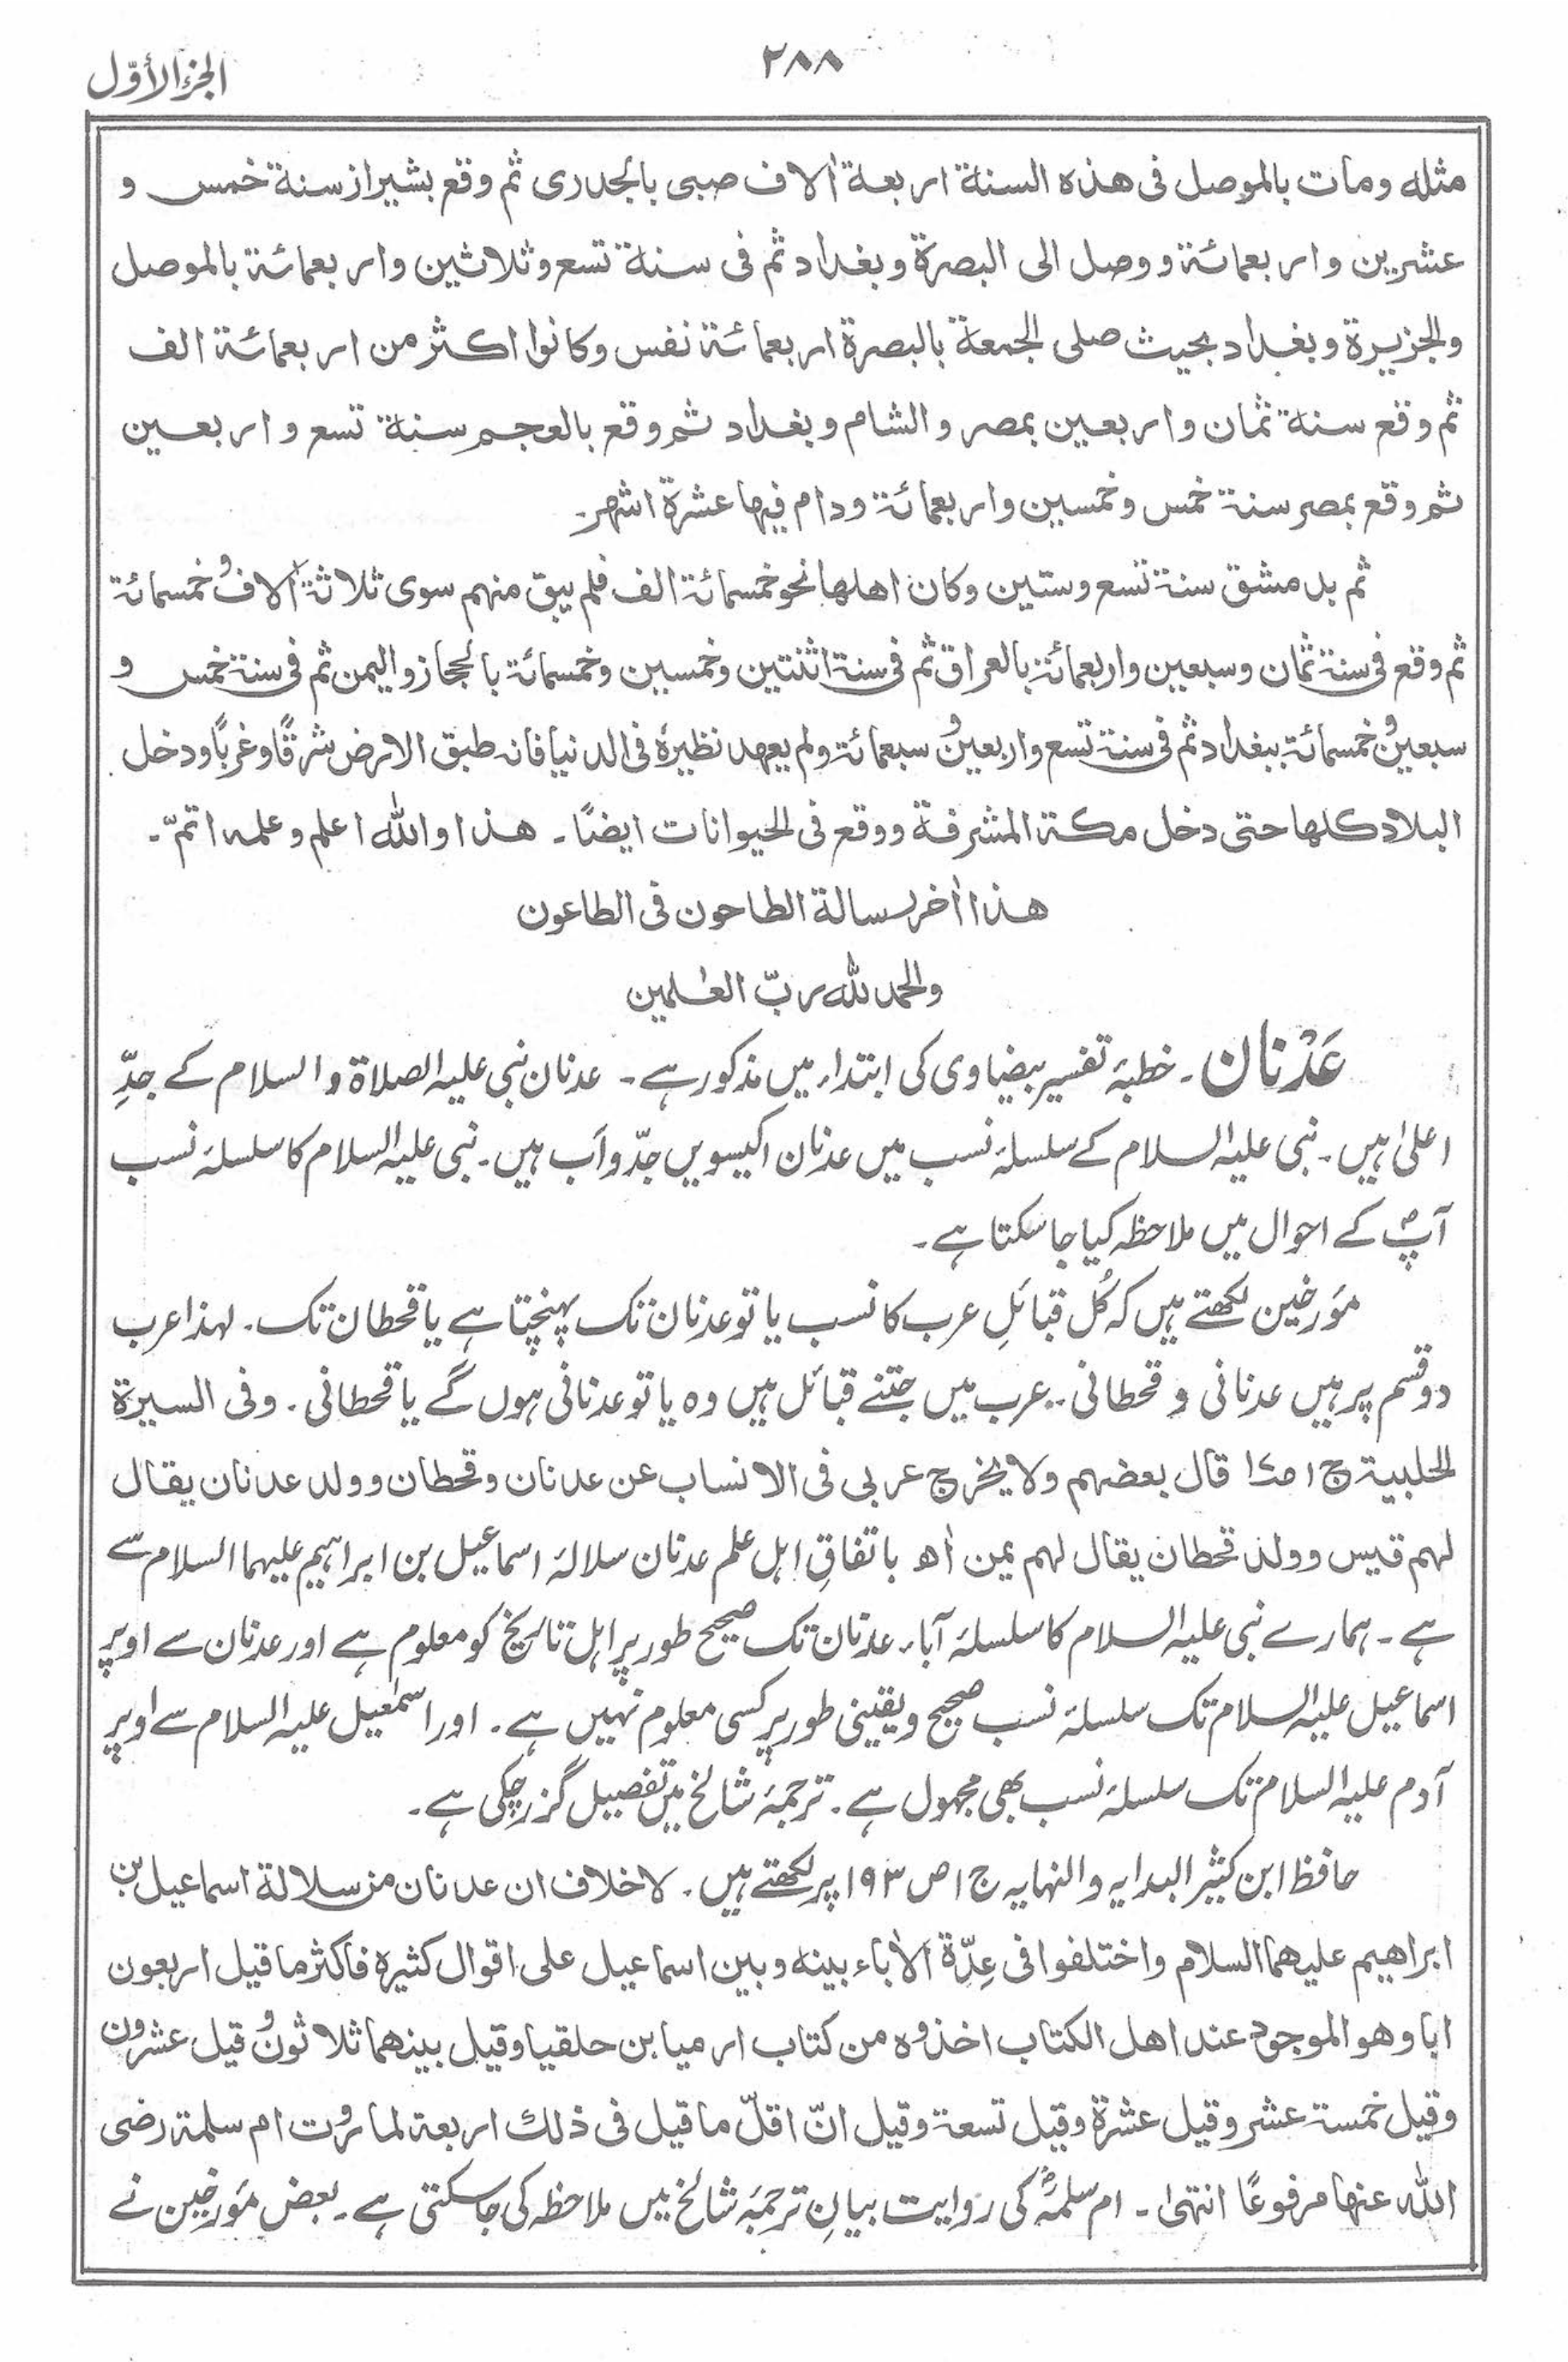 ٢٨٨
الجزء الأوّل
مثله ومات بالموصل فى هذه السنة اربعة اٰلاف صبى بالجدرى ثم وقع بشيراز سنة خمس و
عشرين واربعمائة ووصل الى البصرة وبغداد ثم فى سنة تسع وثلاثين واربعمائة بالموصل
والجزيرة وبغداد بحيث صلى الجمعة بالبصرة اربعمائة نفس وكانوا اكثر من اربعمائة الف
ثم وقع سنة ثمان واربعين بمصر والشام وبغداد ثم وقع بالعجم سنة تسع واربعين
ثم وقع بمصر سنة خمس وخمسين واربعمائة ودام فيها عشرة اشهر۔
ثم بدمشق سنة تسع وستين وكان اهلها نحو خمسمائة الف فلم يبق منهم سوى ثلاثة اٰلاف و خمسمائة
ثم وقع فى سنة ثمان وسبعين واربعمائة بالعراق ثم فى سنة اثنتين وخمسين وخمسمائة بالحجاز واليمن ثم فى سنة خمس و
سبعين و خمسمائة ببغداد ثم فى سنة تسع واربعين و سبعمائة ولم يعهد نظيرهٗ فى الدنيا فانه طبق الارض شرقًا وغربًا ودخل
البلاد كلها حتى دخل مكة المشرفة ووقع فى الحيوانات ايضًا۔ هذا والله اعلم وعلمه اتمّ۔
هذا اٰخر رسالة الطاحون فى الطاعون
والحمد لله ربّ العٰلمين
عَدْنان۔ خطبۂ تفسیر بیضاوی کی ابتداء میں مذکور ہے۔ عدنان نبی علیہ الصلاۃ والسلام کے جدِّ
اعلیٰ ہیں۔ نبی علیہ السلام کے سلسلۂ نسب میں عدنان اکیسویں جدّ و اَب ہیں۔ نبی علیہ السلام کا سلسلۂ نسب
آپؐ کے احوال میں ملاحظہ کیا جا سکتا ہے۔
مؤرخین لکھتے ہیں کہ کُل قبائلِ عرب کا نسب یا تو عدنان تک پہنچتا ہے یا قحطان تک۔ لہذا عرب
دو قسم پر ہیں عدنانی و قحطانی۔ عرب میں جتنے قبائل ہیں وہ یا تو عدنانی ہوں گے یا قحطانی۔ وفی السیرة
الحلبية ج ١ قال بعضهم ولا يخرج عربی فی الانساب عن عدنان وقحطان وولد عدنان يقال
لهم قيس وولد قحطان يقال لهم يمن اھ باتفاقِ اہل علم عدنان سلالۂ اسماعیل بن ابراہیم علیہما السلام سے
ہے۔ ہمارے نبی علیہ السلام کا سلسلۂ آباء عدنان تک صحیح طور پر اہل تاریخ کو معلوم ہے اور عدنان سے اوپر
اسماعیل علیہ السلام تک سلسلۂ نسب صحیح و یقینی طور پر کسی معلوم نہیں ہے۔ اور اسمٰعیل علیہ السلام سے اوپر
آدم علیہ السلام تک سلسلۂ نسب بھی مجہول ہے۔ ترجمۂ شالخ میں تفصیل گزر چکی ہے۔
حافظ ابن کثیر البدایہ والنہایہ ج ١ ص ١٩٣ پر لکھتے ہیں۔ لا خلاف ان عدنان من سلالة اسماعيل بن
ابراهيم عليهما السلام واختلفوا فى عِدّة الاٰباء بينه وبين اسماعيل على اقوال كثيرة فاكثر ما قيل اربعون
ابا وهو الموجود عند اهل الكتاب اخذوه من كتاب ارميا بن حلقيا وقيل بينهما ثلاثون و قيل عشرون
وقيل خمسة عشر وقيل عشرة وقيل تسعة وقيل انّ اقلّ ما قيل فى ذلك اربعة لما روت ام سلمة رضى
الله عنها مرفوعًا انتهىٰ۔ ام سلمہؓ کی روایت بیانِ ترجمۂ شالخ میں ملاحظہ کی جا سکتی ہے۔ بعض مؤرخین نے